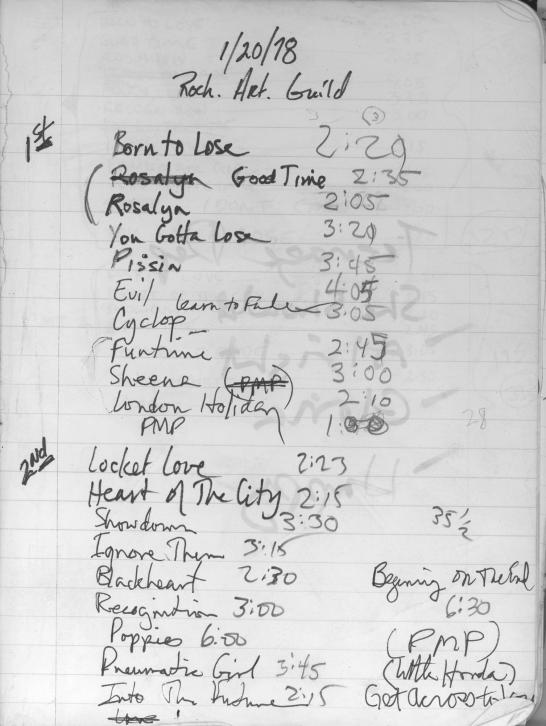 1/20/78
Roch. Art. Guild
1st
3
Born to Lose 2:20
Rosalyn Good Time 2:35
Rosalyn 2:05
You Gotta Lose 3:20
Pissin 3:45
Evil 4:05
Cyclop learn to 3:05
Funtime 2:45
Sheena (PMP) 3:00
London Holiday 2:10
PMP 1:
28
2nd
Locket Love 2:23
Heart of The City 2:15
Showdown 3:30 35 1/2
Ignore Them 3:15
Blackheart 2:30 Beginning on The End
Recognition 3:00 6:30
Poppies 6:00 (PMP)
Pneumatic Girl 3:45 (Little Honda)
Into The Future 2:15 Get across to